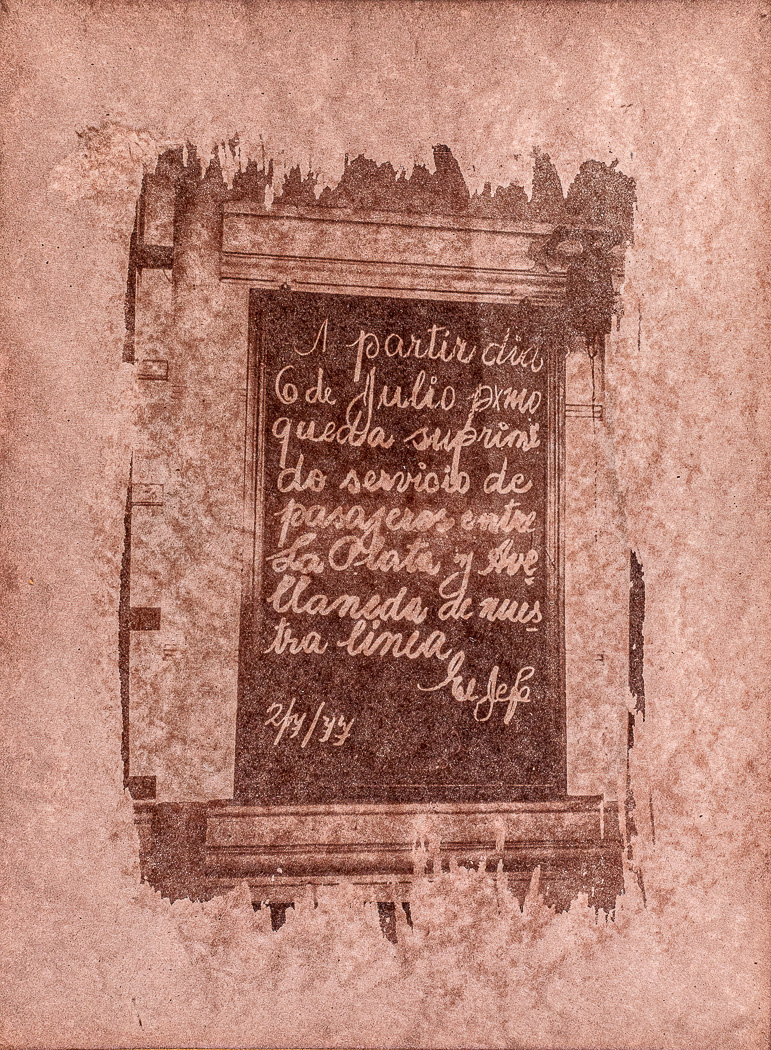 A partir dia
6 de Julio pxmo
queda suprimi
do servicio de
pasajeros entre
La Plata y Ave-
llaneda de nues-
tra linea
El Jefe
2/7/77